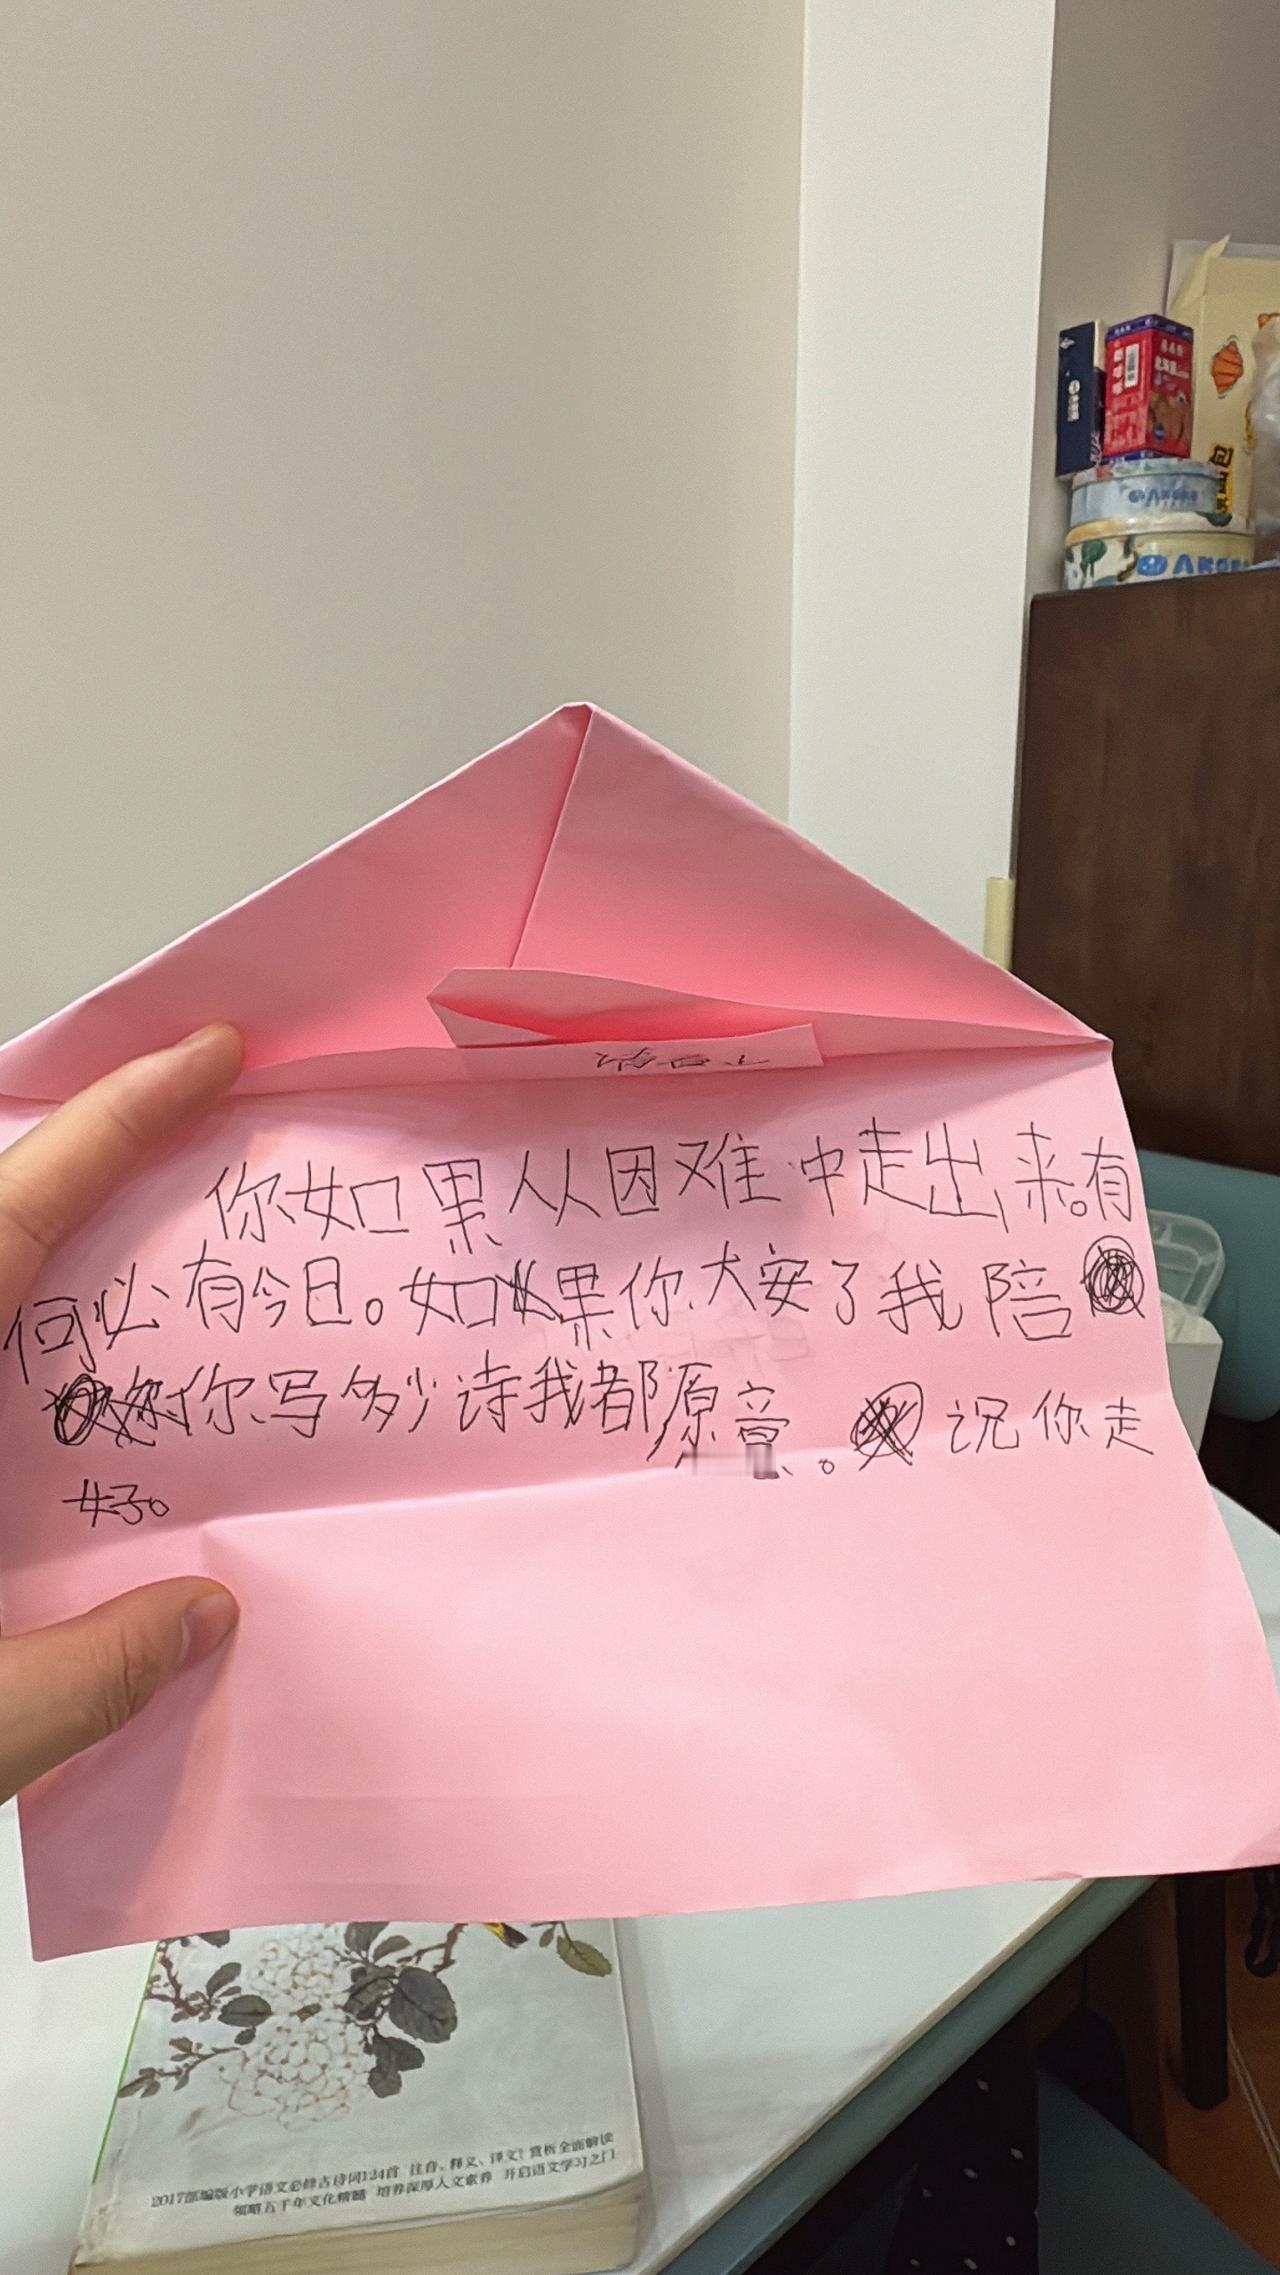 你如果从因难中走出来。有
何必有今日。如果你犬安了我陪
你写多少诗我都原意。说你走
好。
AKOKO
AKOK
2017部编版小学语文必修古诗词124首 注音、释义、译文、赏析全面解读
领略五千年文化精髓 培养深厚人文素养 开启语文学习之门